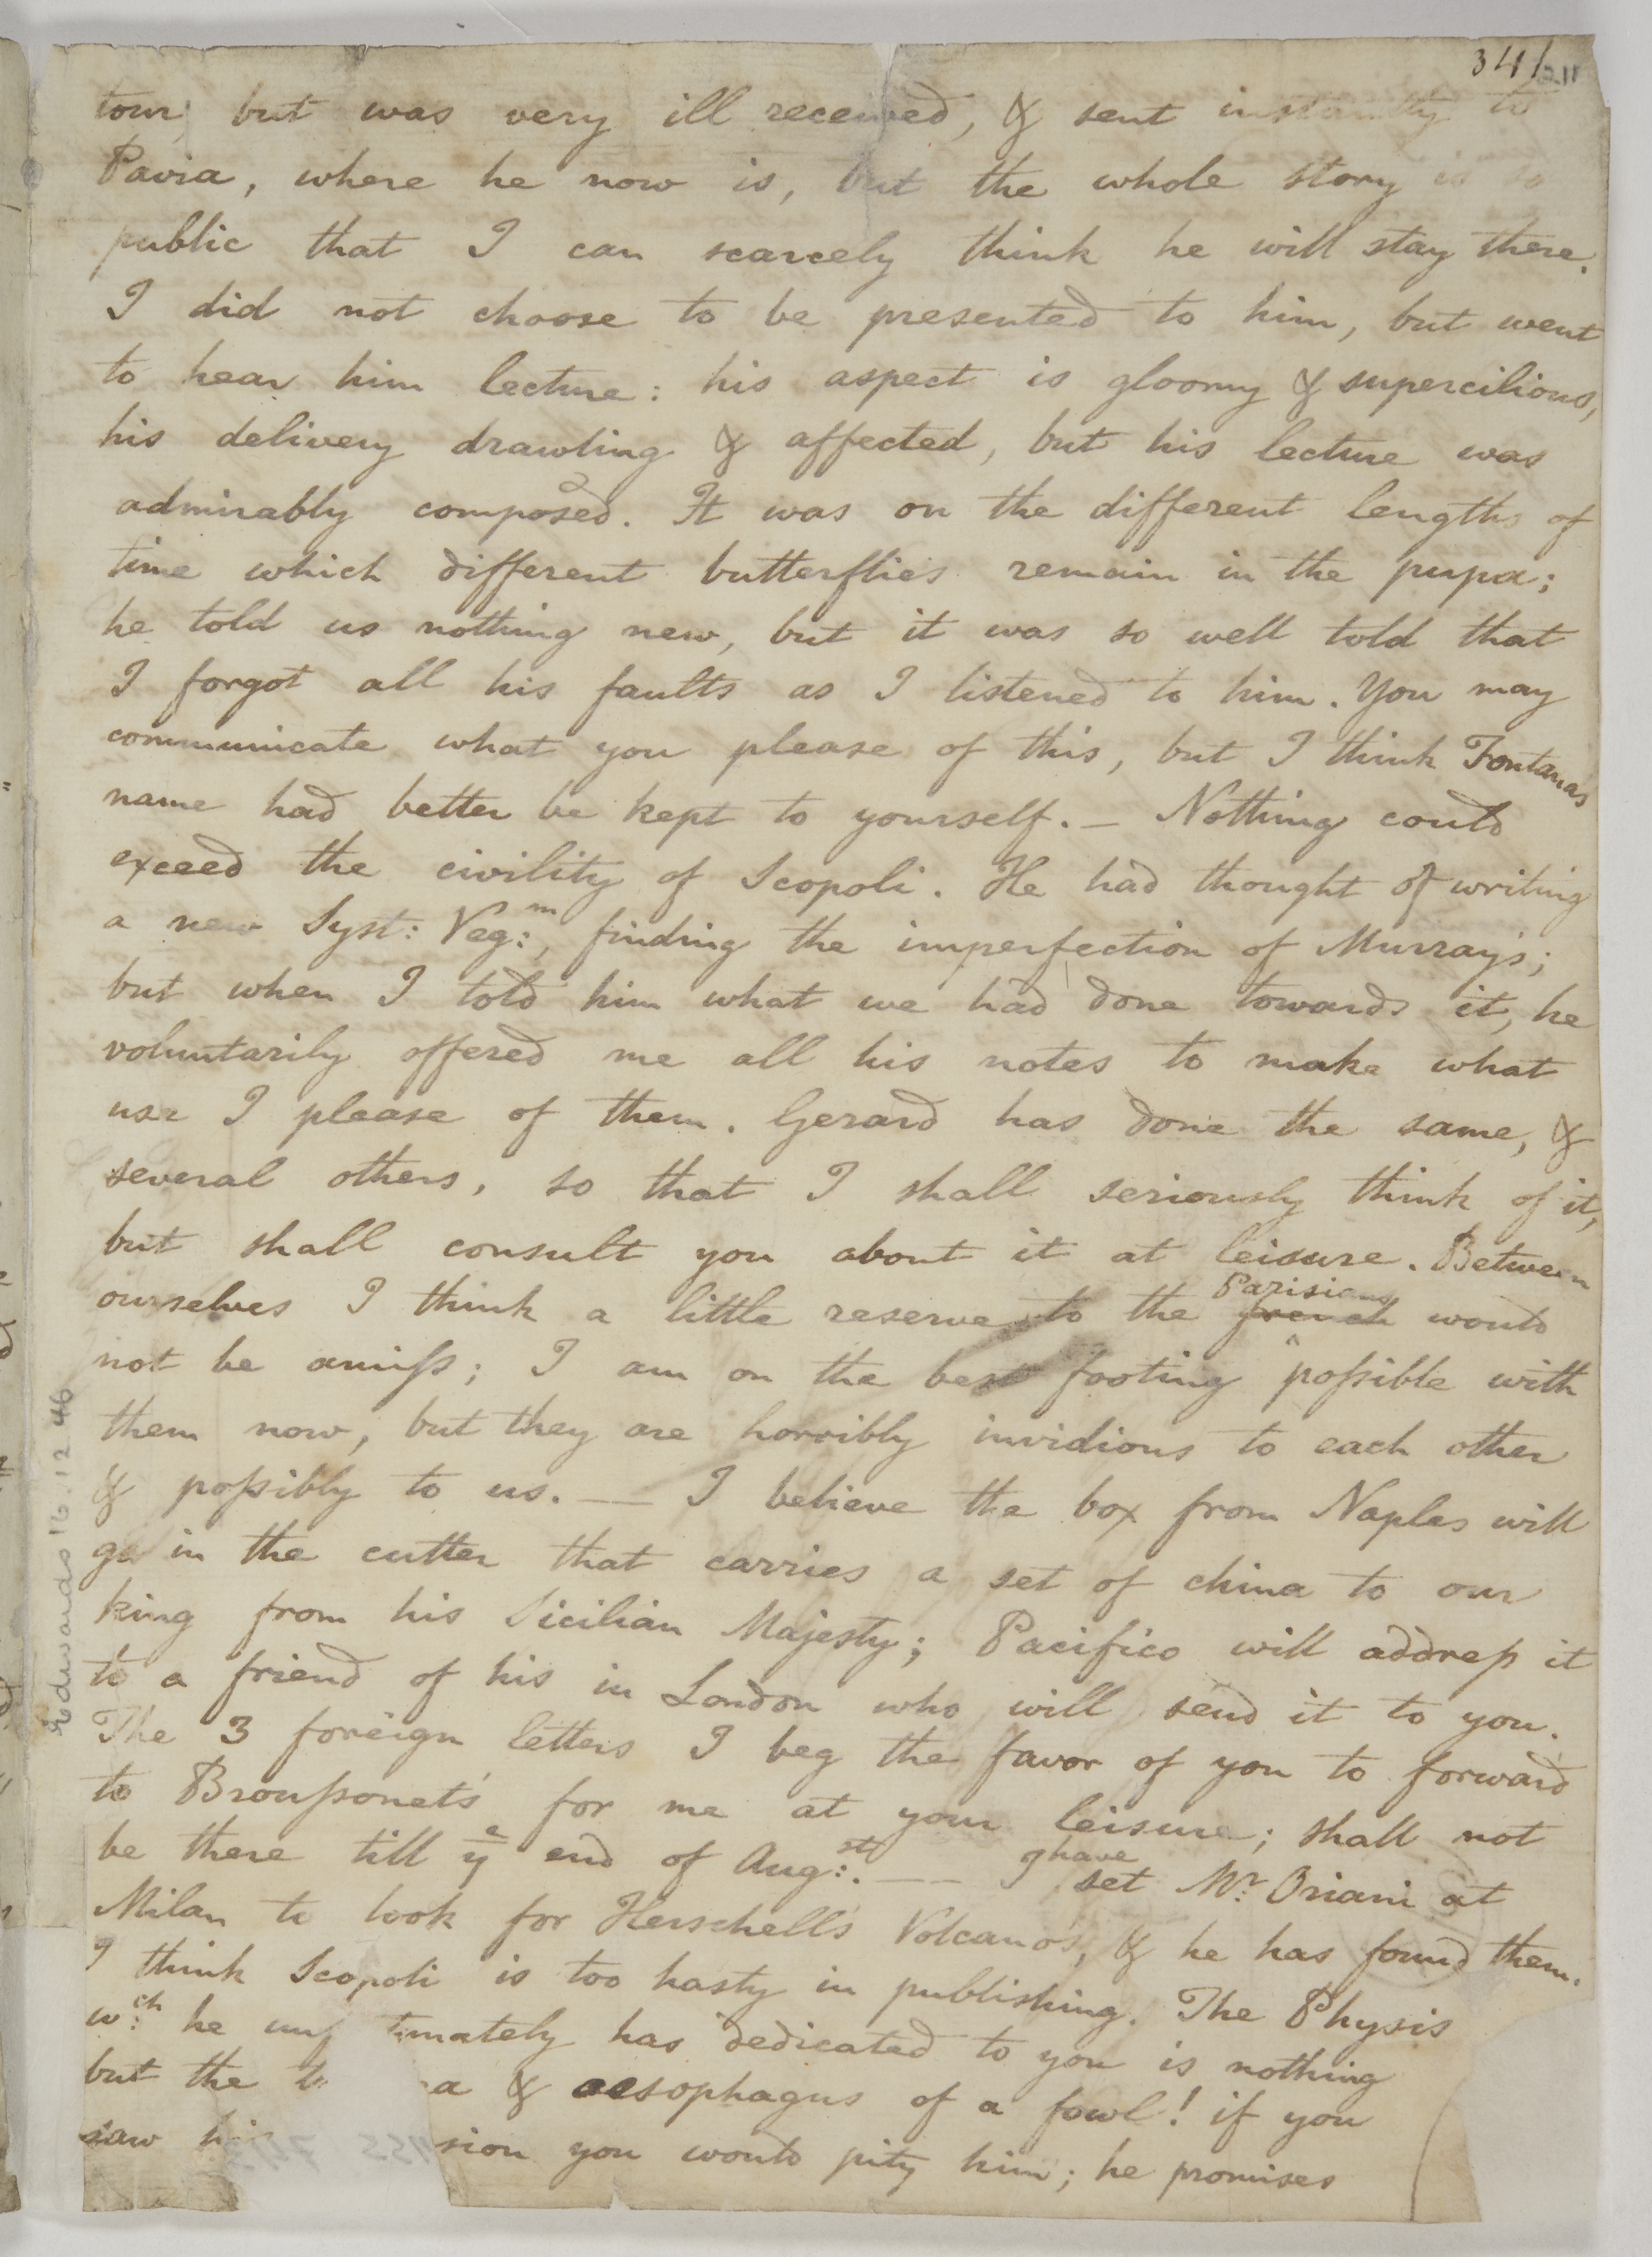 341
211
tour; but was very ill received, & sent instantly to
Pavia, where he now is, but the whole story is so
public that I can scarcely think he will stay there.
I did not choose to be presented to him, but went
to hear him lecture: his aspect is gloomy & supercilious,
his delivery drawling & affected, but his lecture was
admirably composed. It was on the different lengths of
time which different butterflies remain in the pupa;
he told us nothing new, but it was so well told that
I forgot all his faults as I listened to him. You may
communicate what you please of this, but I think Fontanas
name had better be kept to yourself. — Nothing could
exceed the civility of Scopoli. He had thought of writing
a new Syst: Veg:m, finding the imperfection of Murray's;
but when I told him what we had done towards it, he
voluntarily offered me all his notes to make what
use I please of them. Gerard has done the same, &
several others, so that I shall seriously think of it,
but shall consult you about it at leisure. Between
ourselves I think a little reserve to the french Parisians would
not be amiſs; I am on the best footing poſsible with
them now, but they are horribly invidious to each other
& poſsibly to us. — I believe the box from Naples will
go in the cutter that carries a set of china to our
king from his Sicilian Majesty; Pacifico will addreſs it
to a friend of his in London who will send it to you.
The 3 foreign letters I beg the favor of you to forward
to Brouſsonet's for me at your leisure; shall not
be there till ye end of Aug:st. — I have set Mr. Oriani at
Milan to look for Herschell's Volcano's, & he has found them.
I think Scopoli is too hasty in publishing. The Physis
wch: he unf tunately has dedicated to you is nothing
but the a & aesophagus of a fowl! if you
saw his sion you would pity him; he promises
Edwards 16.12.46